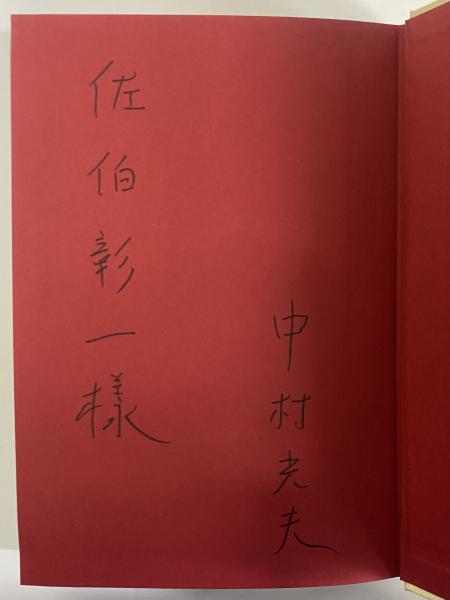 中村光夫
佐伯彰一樣